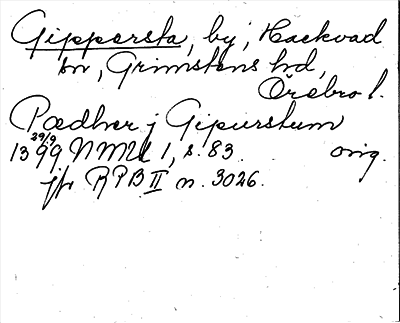 Gippersta, by, Hackvad
sn, Grimstens hd,
Örebro l.
Pædher j Gipurstum
29/9
1399 NMU 1, s. 83. orig.
jfr RPB II n. 3026.